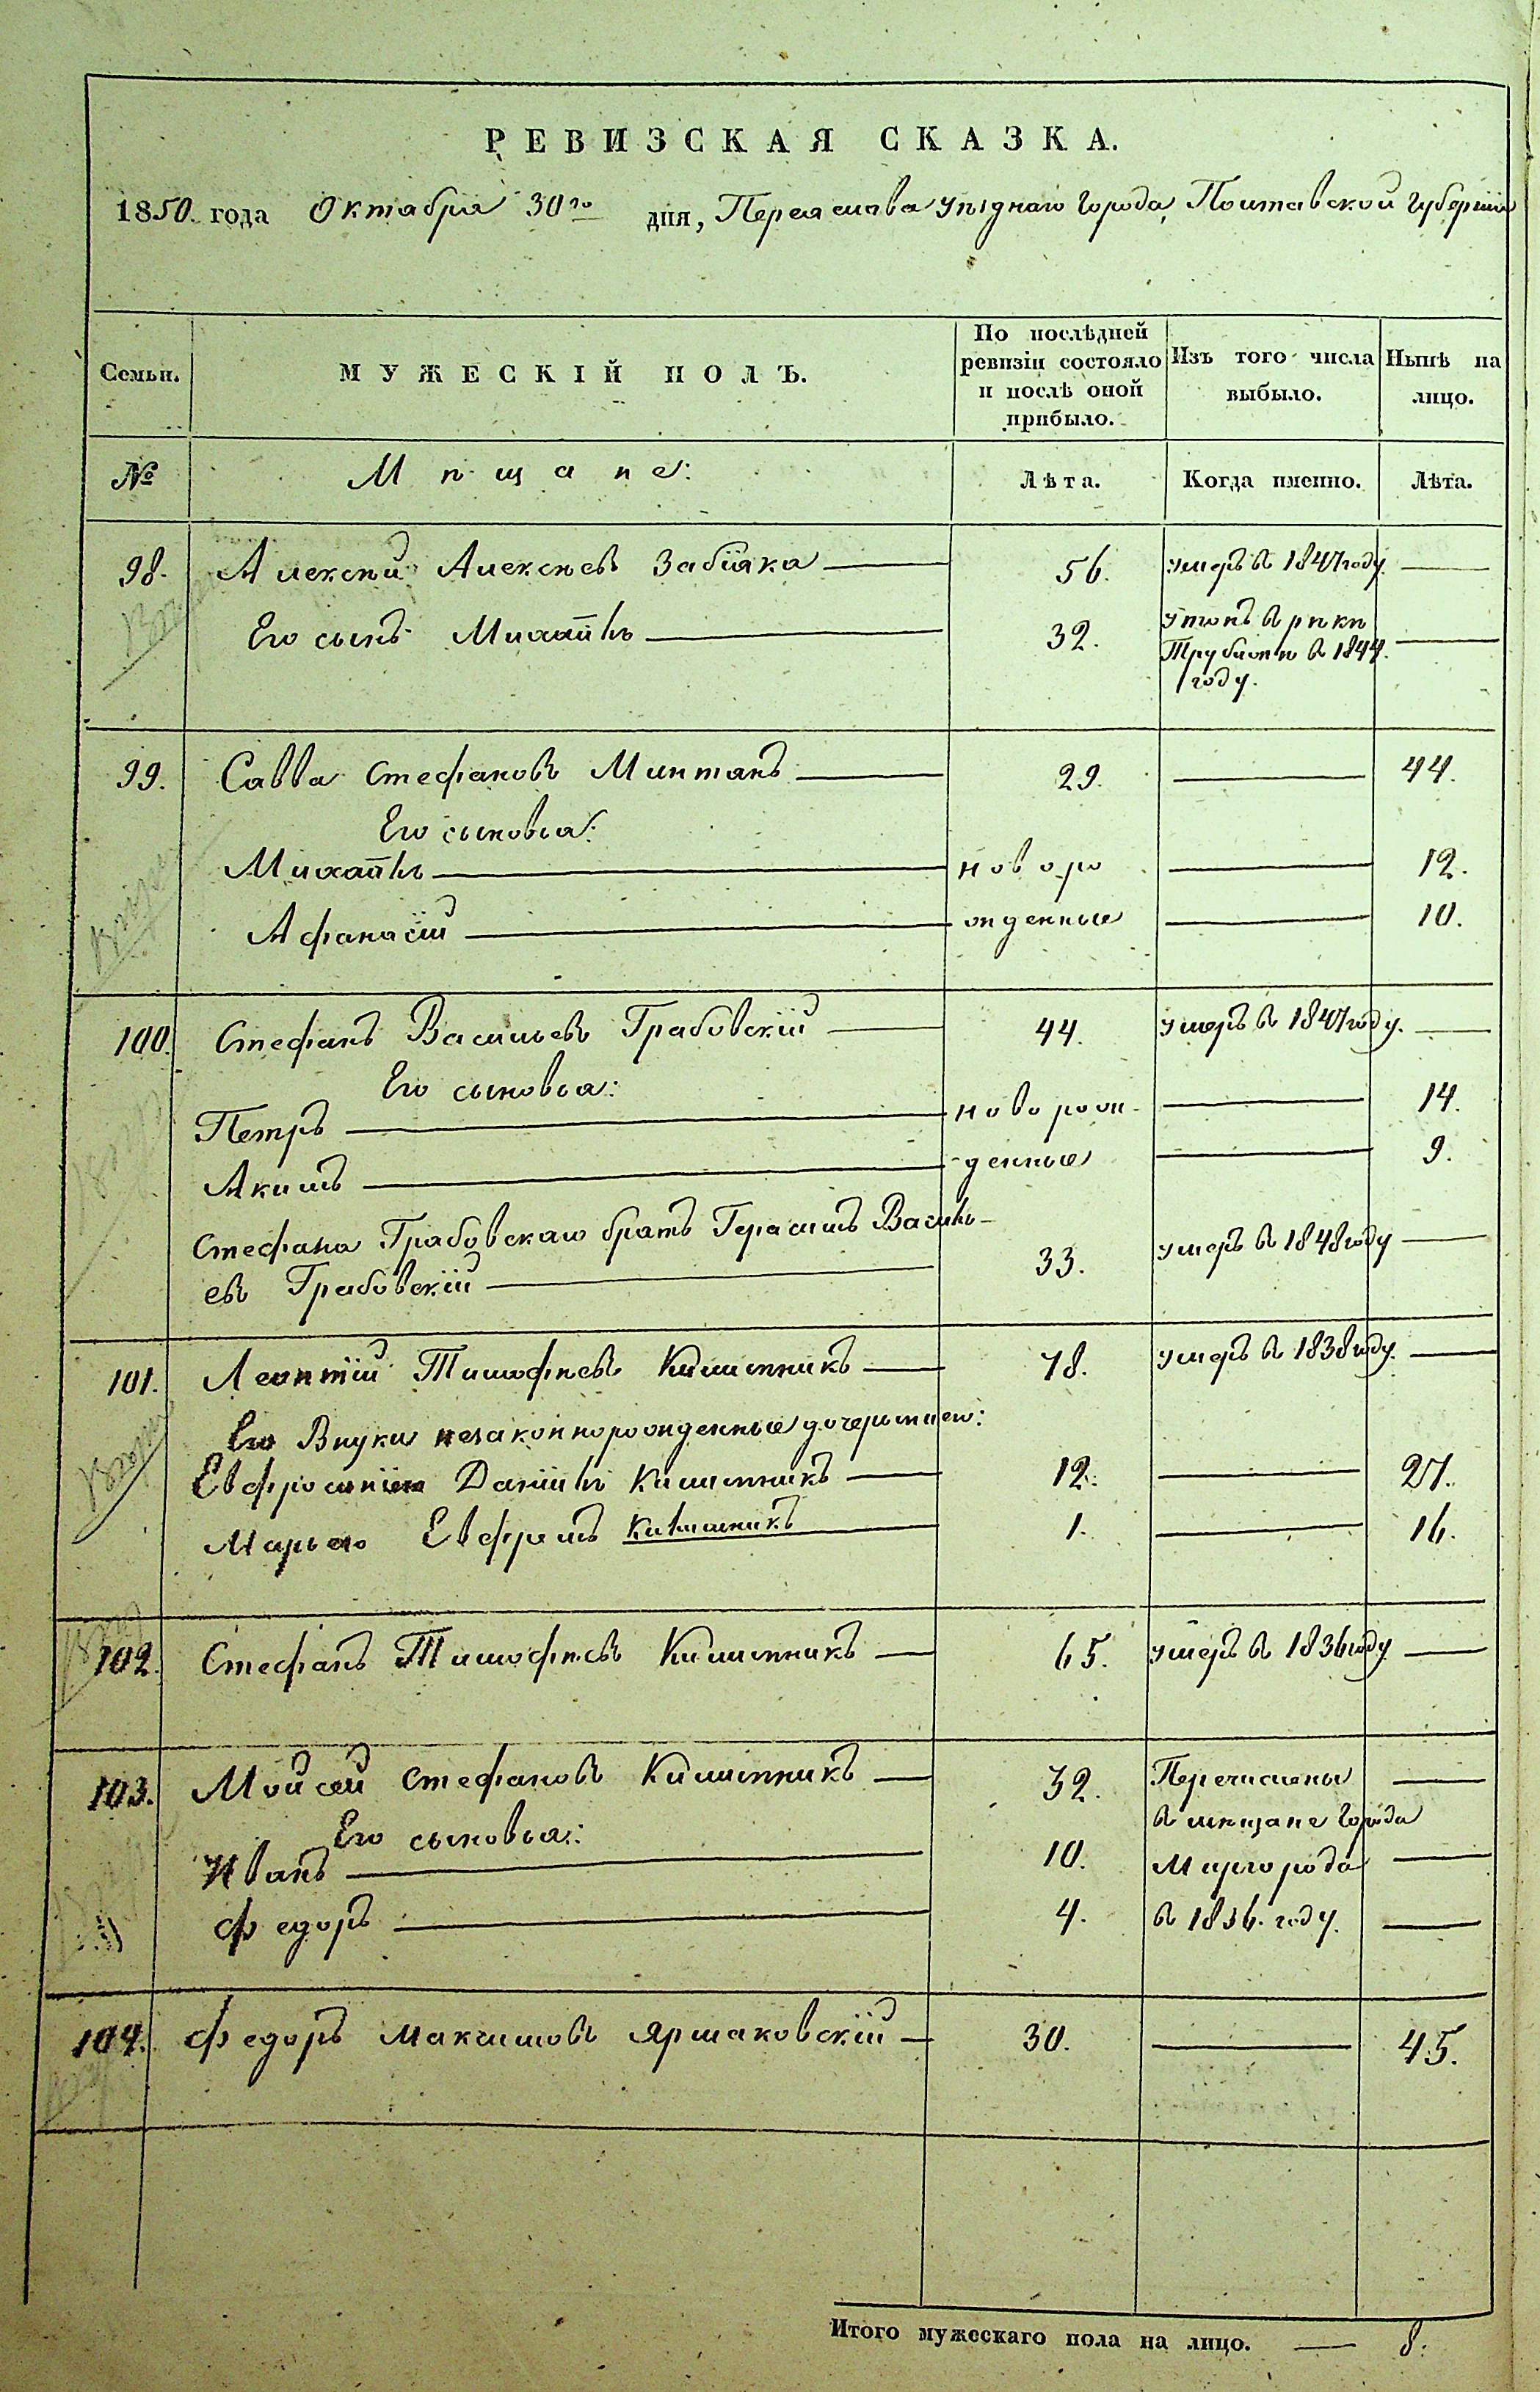 РЕВИЗСКАЯ СКАЗКА.
1850. года Октября 30го дня, Переяслава уѣзднаго города, Полтавской губерніи
Семьи. МУЖЕСКІЙ ПОЛЪ. По послѣдней ревизіи состояло и послѣ оной прибыло. Изъ того числа выбыло. Нынѣ на лицо.
№ Мѣщане: Лѣта. Когда именно. Лѣта.
98. Алексѣй Алексѣевъ Забіяка — 56. умеръ въ 1847 году. —
Его сынъ Михаилъ — 32. утопъ въ рѣкѣ
Трубежѣ въ 1844.
году.
99. Савва Стефановъ Минтянъ — 29. — 44.
Его сыновья:
Михаилъ — новоро — 12.
Афанасій — жденные — 10.
100. Стефанъ Васильевъ Грабовскій — 44. умеръ въ 1847 году. —
Его сыновья:
Петръ — новорож- — 14.
Акимъ — -денные — 9.
Стефана Грабовскаго братъ Герасимъ Василь-
евъ Грабовскій — 33. умеръ въ 1848 году —
101. Леонтій Тимофѣевъ Килимникъ — 78. умеръ въ 1838 году. —
Его Внуки незаконнорожденные дочерьми его:
Евфросиніею Даніилъ Килимникъ — 12. — 27.
Марьею Ефремъ Килимникъ — 1. — 16.
102. Стефанъ Тимофѣевъ Килимникъ — 65. умеръ въ 1836 году —
103. Мойсей Стефановъ Килимникъ — 32. Перечислены —
Его сыновья: въ мѣщане города
Иванъ — 10. Миргорода —
Федоръ — 4. въ 1836. году. —
104. Федоръ Максимовъ Ярмаковскій — 30. — 45.
Итого мужескаго пола на лицо. — 8.